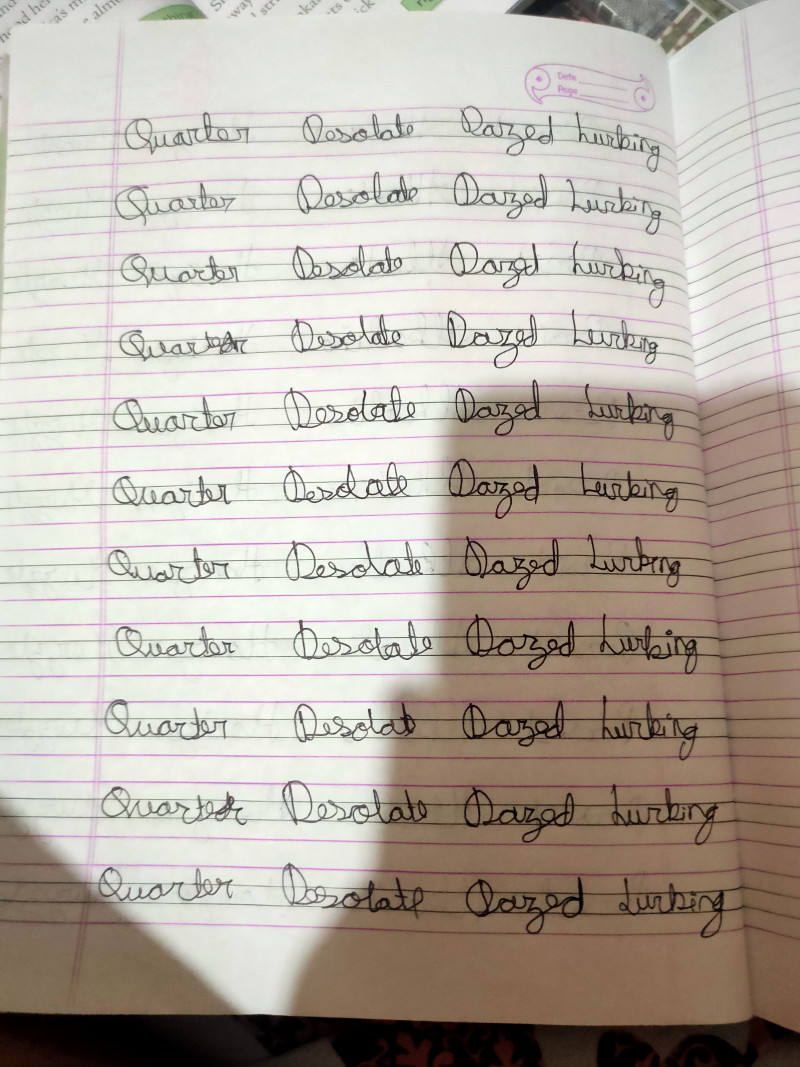 Date
Page
Quarter Desolate Dazed Lurking
Quarter Desolate Dazed Lurking
Quarter Desolate Dazed Lurking
Quarter Desolate Dazed Lurking
Quarter Desolate Dazed Lurking
Quarter Desolate Dazed Lurking
Quarter Desolate Dazed Lurking
Quarter Desolate Dazed Lurking
Quarter Desolat Dazed Lurking
Quarter Desolate Dazed Lurking
Quarter Desolate Dazed Lurking